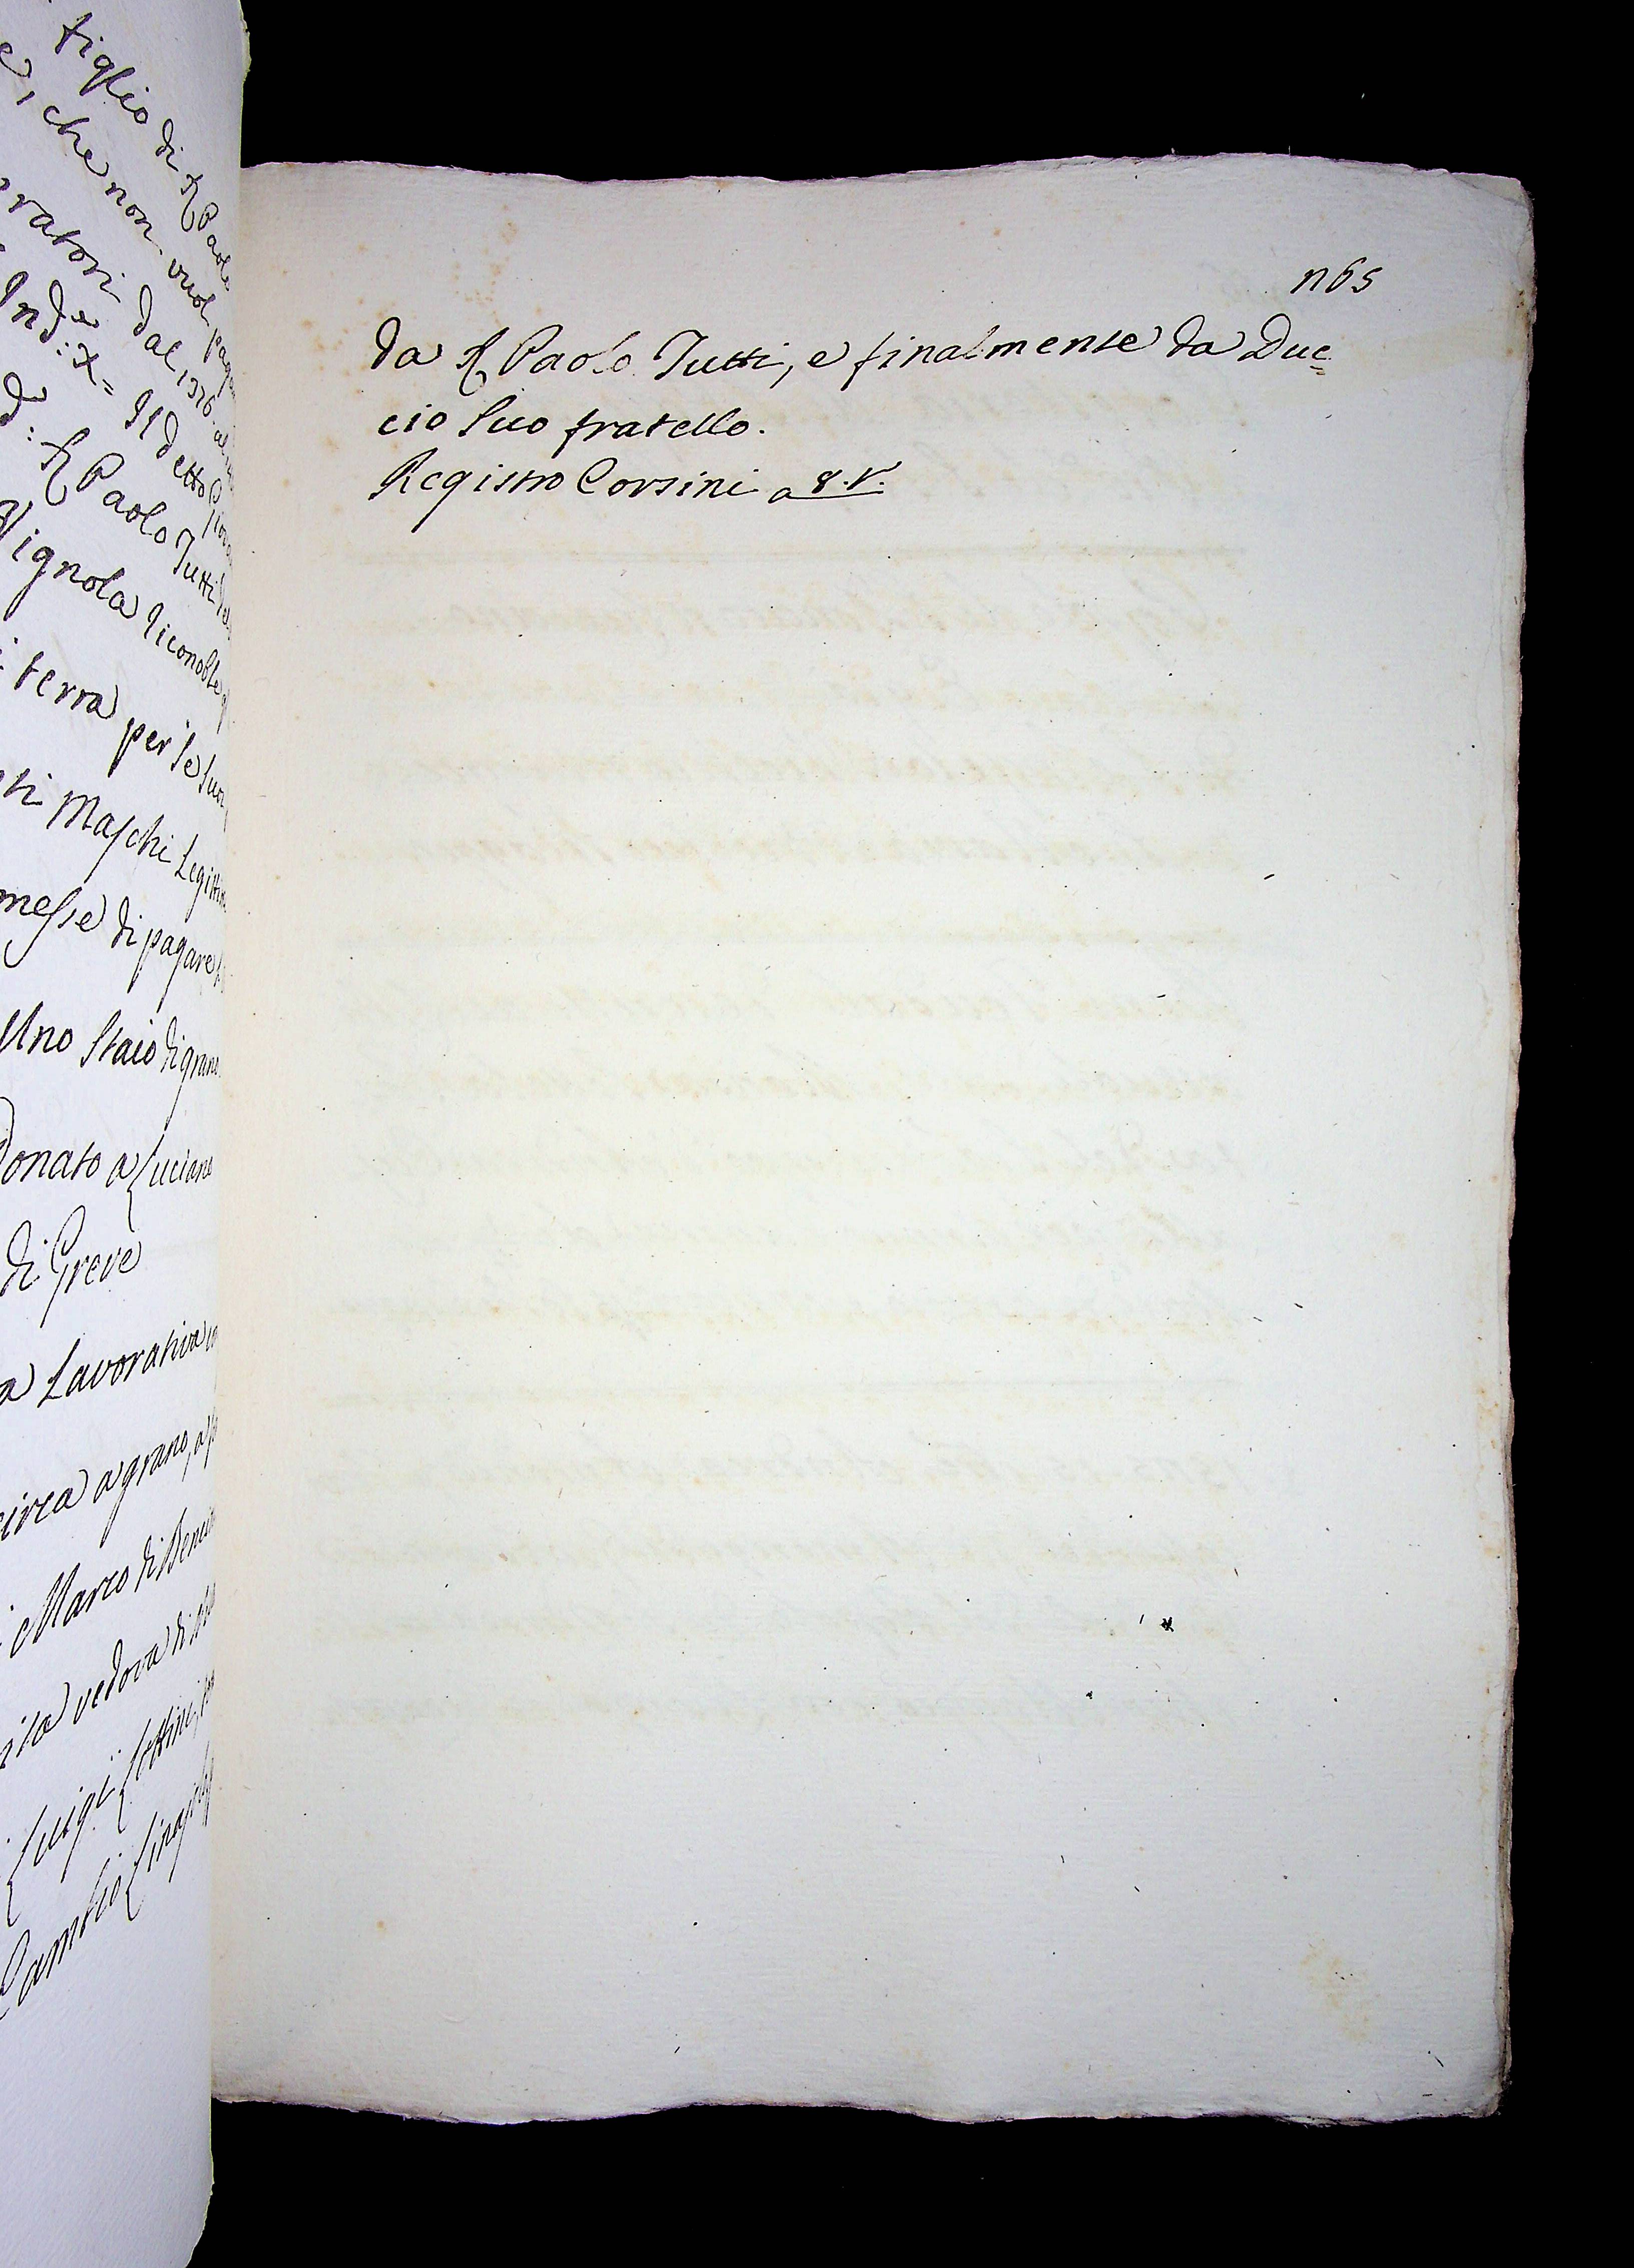 figlio di R Paolo
e, che non vuol pag
ratori dal 1376. al
Ind: X= Il detto Pio
d: R Paolo Tutti
Vignola
terra per se Suoi
ti Maschi Legittimi
messe di pagare
Uno Staio di grano
Donato a Luciano
di Greve
a Lavorativa
circa a grano, a
Marco di Benci
vedova di
Luigi Lottini,
Cambio
1165
da R Paolo Tutti, e finalmente da Duc=
cio Suo fratello.
Registro Corsini a 8. V.